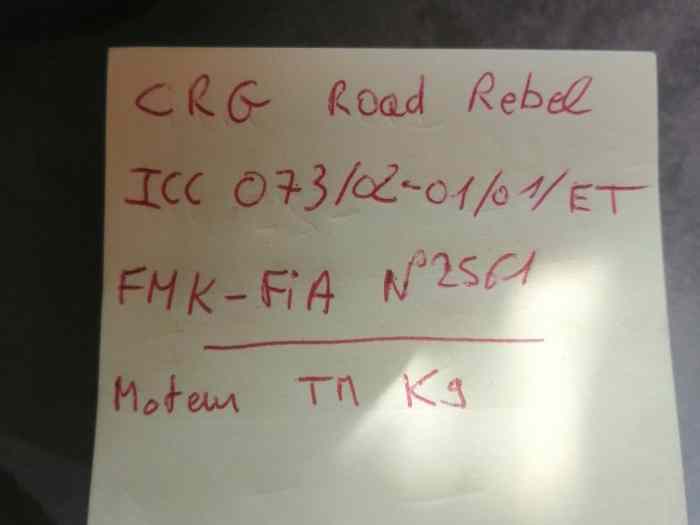 CRG Road Rebel
ICC 073/02-01/01/ET
FMK-FiA N°2561
Moteur TM K9